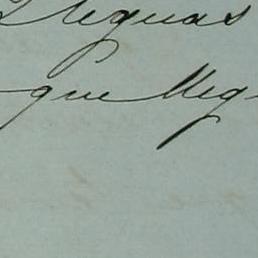 lleguas
que lleg